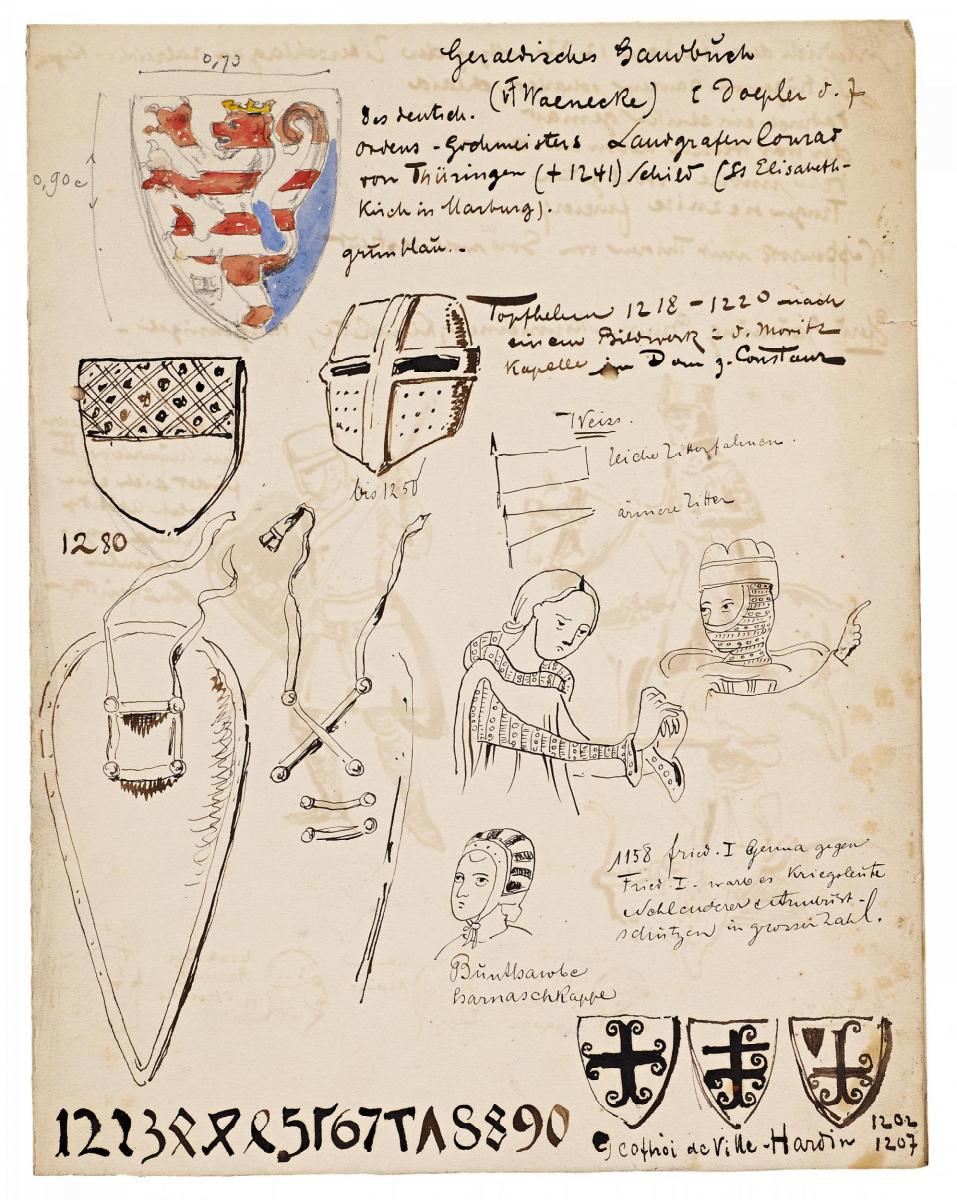 0,73
Heraldisches Handbuch
(F Warnecke) E Doepler d. J
0,90 c
Des deutsch.
Ordens-Hochmeisters Landgrafen Conrad
von Thüringen († 1241) Schild (Elisabeth-
kirch in Marburg).
grünblau.
Topfhelm 1218 - 1220 nach
einem Bildwerk i. d. Moritz
Kapelle im Dom z. Constanz
bis 1250
Weiss.
reiche Ritterfahnen.
ärmere Ritter
1280
1158 Fried. I Genua gegen
Fried I. warb es Kriegsleute
Schleuderer & Armbrust-
schützen in grosser Zahl.
Buntharobe
harnaschkappe
1223 567 8890
Geoffroi de Ville-Hardin
1202
1207